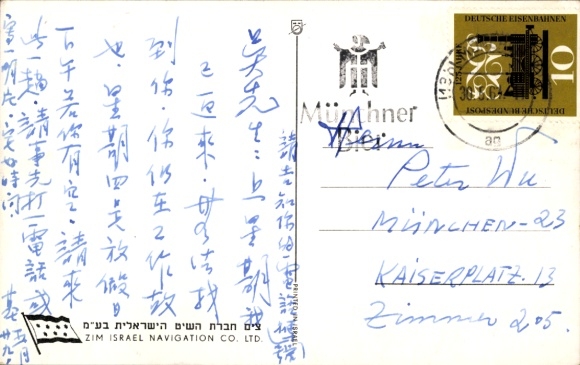 吳先生：上星期我
已回來，無法找
到你，你仍在工作故
也，星期四是放假日
下午若你有空，請來
此一趟，請事先打一電話或
寫一明片，定好時間，
五月
廿九
請告知你的電話號
צים חברת השיט הישראלית בע"מ
ZIM ISRAEL NAVIGATION CO. LTD.
PRINTED IN ISRAEL
Münchner
Bier
DEUTSCHE EISENBAHNEN
125 JAHRE
10
DEUTSCHE BUNDESPOST
ag
Herrn
Peter Wu
MÜNCHEN-23
KAISERPLATZ. 13
Zimmer 205.